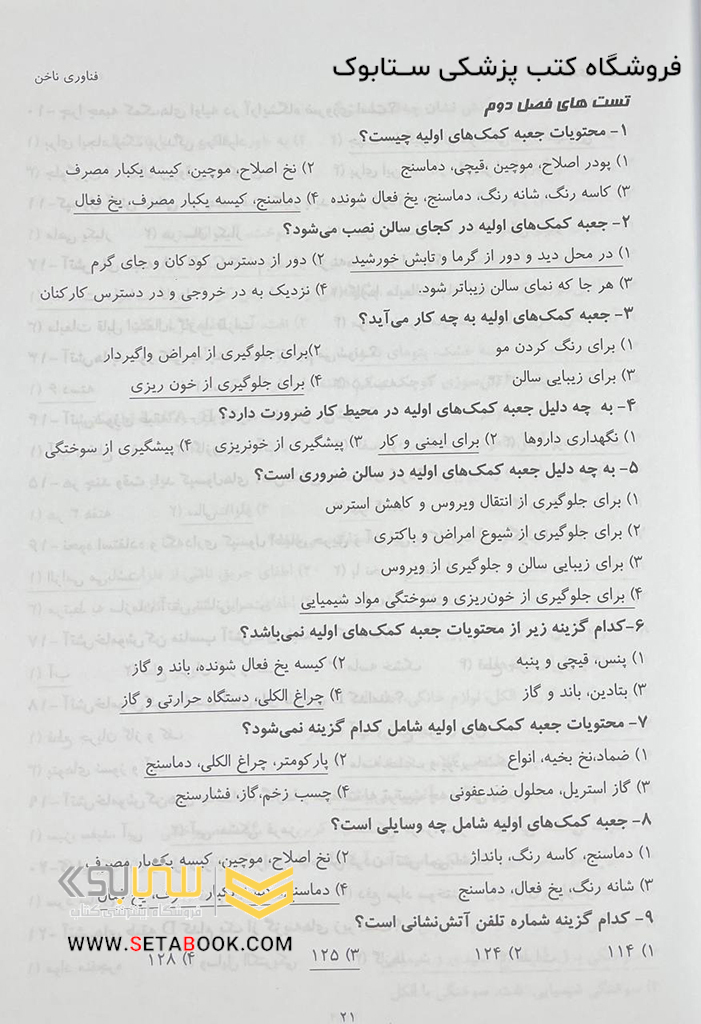 فروشگاه کتب پزشکی ستابوک
فناوری ناخن
تست های فصل دوم
۱- محتویات جعبه کمک‌های اولیه چیست؟
۱) پودر اصلاح، موچین ،قیچی، دماسنج ۲) نخ اصلاح، موچین، کیسه یکبار مصرف
۳) کاسه رنگ، شانه رنگ، دماسنج، یخ فعال شونده ۴) دماسنج، کیسه یکبار مصرف، یخ فعال
۲- جعبه کمک‌های اولیه در کجای سالن نصب می‌شود؟
۱) در محل دید و دور از گرما و تابش خورشید ۲) دور از دسترس کودکان و جای گرم
۳) هر جا که نمای سالن زیباتر شود. ۴) نزدیک به در خروجی و در دسترس کارکنان
۳- جعبه کمک‌های اولیه به چه کار می‌آید؟
۱) برای رنگ کردن مو ۲)برای جلوگیری از امراض واگیردار
۳) برای زیبایی سالن ۴) برای جلوگیری از خون ریزی
۴- به چه دلیل جعبه کمک‌های اولیه در محیط کار ضرورت دارد؟
۱) نگهداری داروها ۲) برای ایمنی و کار ۳) پیشگیری از خونریزی ۴) پیشگیری از سوختگی
۵- به چه دلیل جعبه کمک‌های اولیه در سالن ضروری است؟
۱) برای جلوگیری از انتقال ویروس و کاهش استرس
۲) برای جلوگیری از شیوع امراض و باکتری
۳) برای زیبایی سالن و جلوگیری از ویروس
۴) برای جلوگیری از خون‌ریزی و سوختگی مواد شیمیایی
۶-کدام گزینه زیر از محتویات جعبه کمک‌های اولیه نمی‌باشد؟
۱) پنس، قیچی و پنبه ۲) کیسه یخ فعال شونده، باند و گاز
۳) بتادین، باند و گاز ۴) چراغ الکلی، دستگاه حرارتی و گاز
۷- محتویات جعبه کمک‌های اولیه شامل کدام گزینه نمی‌شود؟
۱) ضماد،نخ بخیه، انواع ۲) پارکومتر، چراغ الکلی، دماسنج
۳) گاز استریل، محلول ضدعفونی ۴) چسب زخم،گاز، فشارسنج
۸- جعبه کمک‌های اولیه شامل چه وسایلی است؟
۱) دماسنج، کاسه رنگ، بانداژ ۲) نخ اصلاح، موچین، کیسه یکبار مصرف
۳) شانه رنگ، یخ فعال، دماسنج ۴) دماسنج، یکبار مصرف، یخ فعال
ستابوک
فروشگاه اینترنتی کتاب
۹- کدام گزینه شماره تلفن آتش‌نشانی است؟
WWW.SETABOOK.COM
۱) ۱۱۴ ۲) ۱۲۴ ۳) ۱۲۵ ۴) ۱۲۸
۲۱